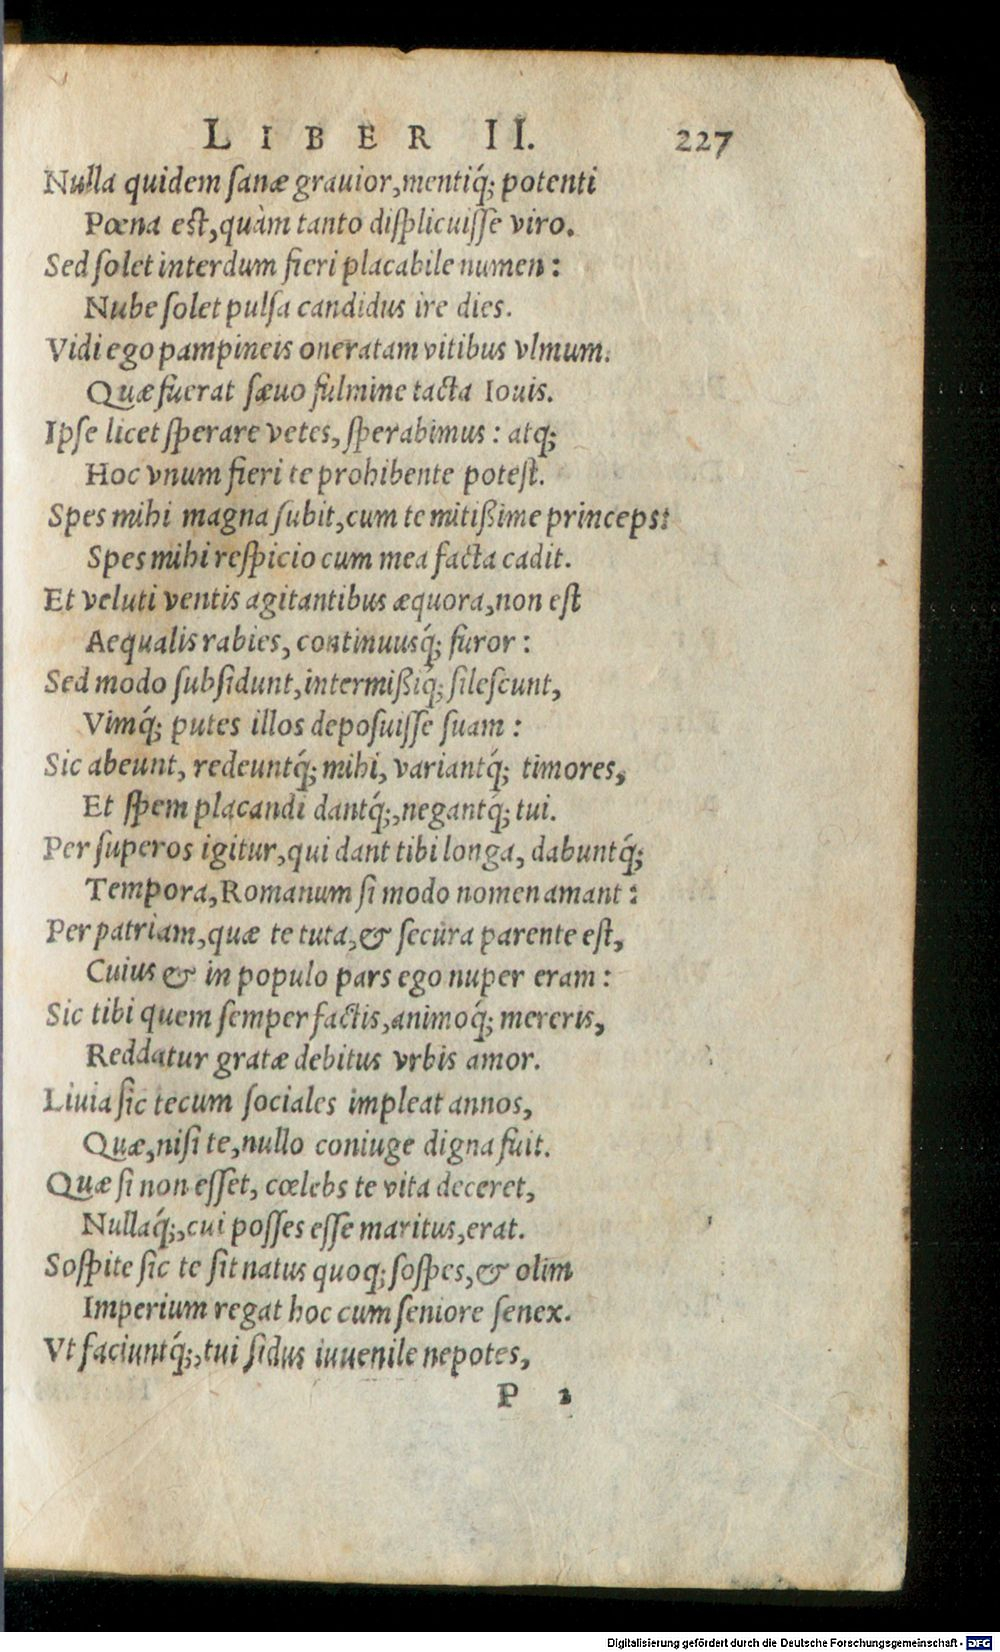 LIBER II. 227
Nulla quidem ſanæ grauior, mentiq́; potenti
Pœna eſt, quàm tanto diſplicuiſſe viro.
Sed ſolet interdum fieri placabile numen:
Nube ſolet pulſa candidus ire dies.
Vidi ego pampineis oneratam vitibus vlmum.
Quæ fuerat ſæuo fulmine tacta Iouis.
Ipſe licet ſperare vetes, ſperabimus: atq;
Hoc vnum fieri te prohibente poteſt.
Spes mihi magna ſubit, cum te mitißime princeps:
Spes mihi reſpicio cum mea facta cadit.
Et veluti ventis agitantibus æquora, non eſt
Aequalis rabies, continuusq́; furor:
Sed modo ſubſidunt, intermißiq́; ſileſcunt,
Vimq́; putes illos depoſuiſſe ſuam:
Sic abeunt, redeuntq́; mihi, variantq́; timores,
Et ſpem placandi dantq́;, negantq́; tui.
Per ſuperos igitur, qui dant tibi longa, dabuntq́;
Tempora, Romanum ſi modo nomen amant:
Per patriam, quæ te tuta, & ſecura parente eſt,
Cuius & in populo pars ego nuper eram:
Sic tibi quem ſemper factis, animoq́; mereris,
Reddatur gratæ debitus vrbis amor.
Liuia ſic tecum ſociales impleat annos,
Quæ, niſi te, nullo coniuge digna fuit.
Quæ ſi non eſſet, cœlebs te vita deceret,
Nullaq́;, cui poſſes eſſe maritus, erat.
Soſpite ſic te ſit natus quoq; ſoſpes, & olim
Imperium regat hoc cum ſeniore ſenex.
Vt faciuntq́;, tui ſidus iuuenile nepotes,
P 2
Digitalisierung gefördert durch die Deutsche Forschungsgemeinschaft - DFG